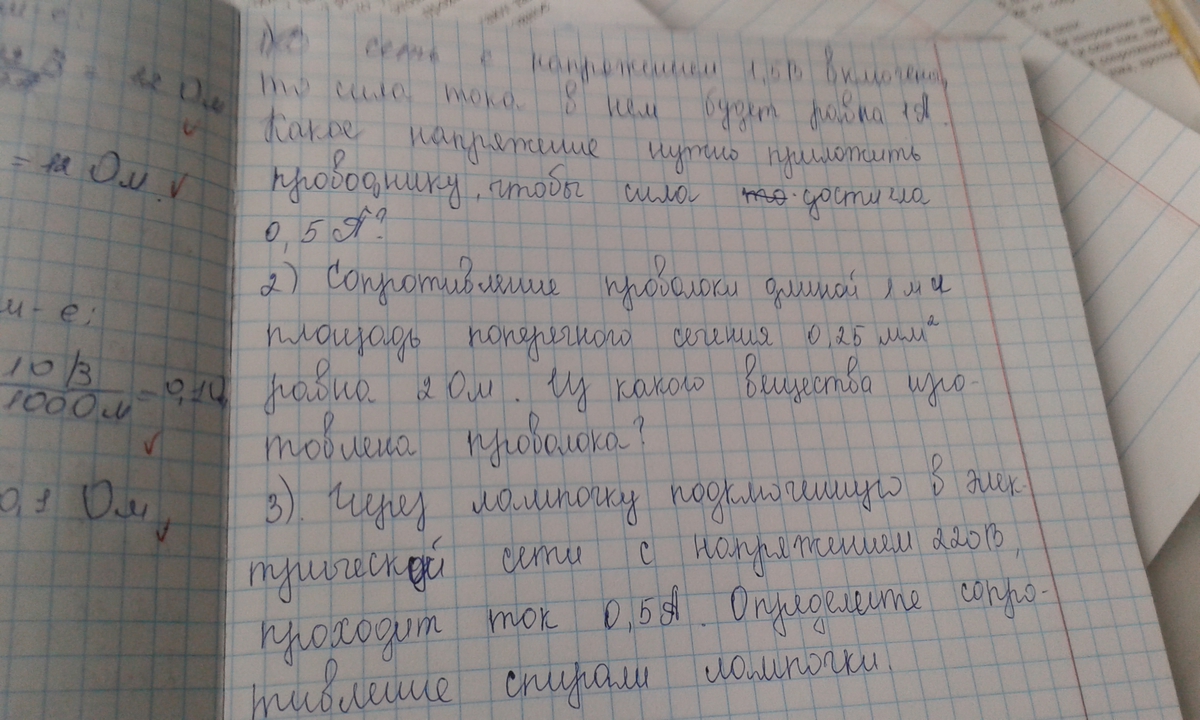 = 11 Ом
= 11 Ом.
м-е:
10 В
1000м = 0,10
0,1 Ом
сеть с напряжением 1,5В включена,
то сила тока в нем будет равна 1А.
Какое напряжение нужно приложить
проводнику, чтобы сила то достигла
0,5А?
2) Сопротивление проволоки длиной 1м и
площадь поперечного сечения 0,25 мм²
равна 2 Ом. Из какого вещества изго-
товлена проволока?
3). Через лампочку подключенную в элек-
трической сети с напряжением 220В,
проходит ток 0,5А. Определите сопро-
тивление спирали лампочки.